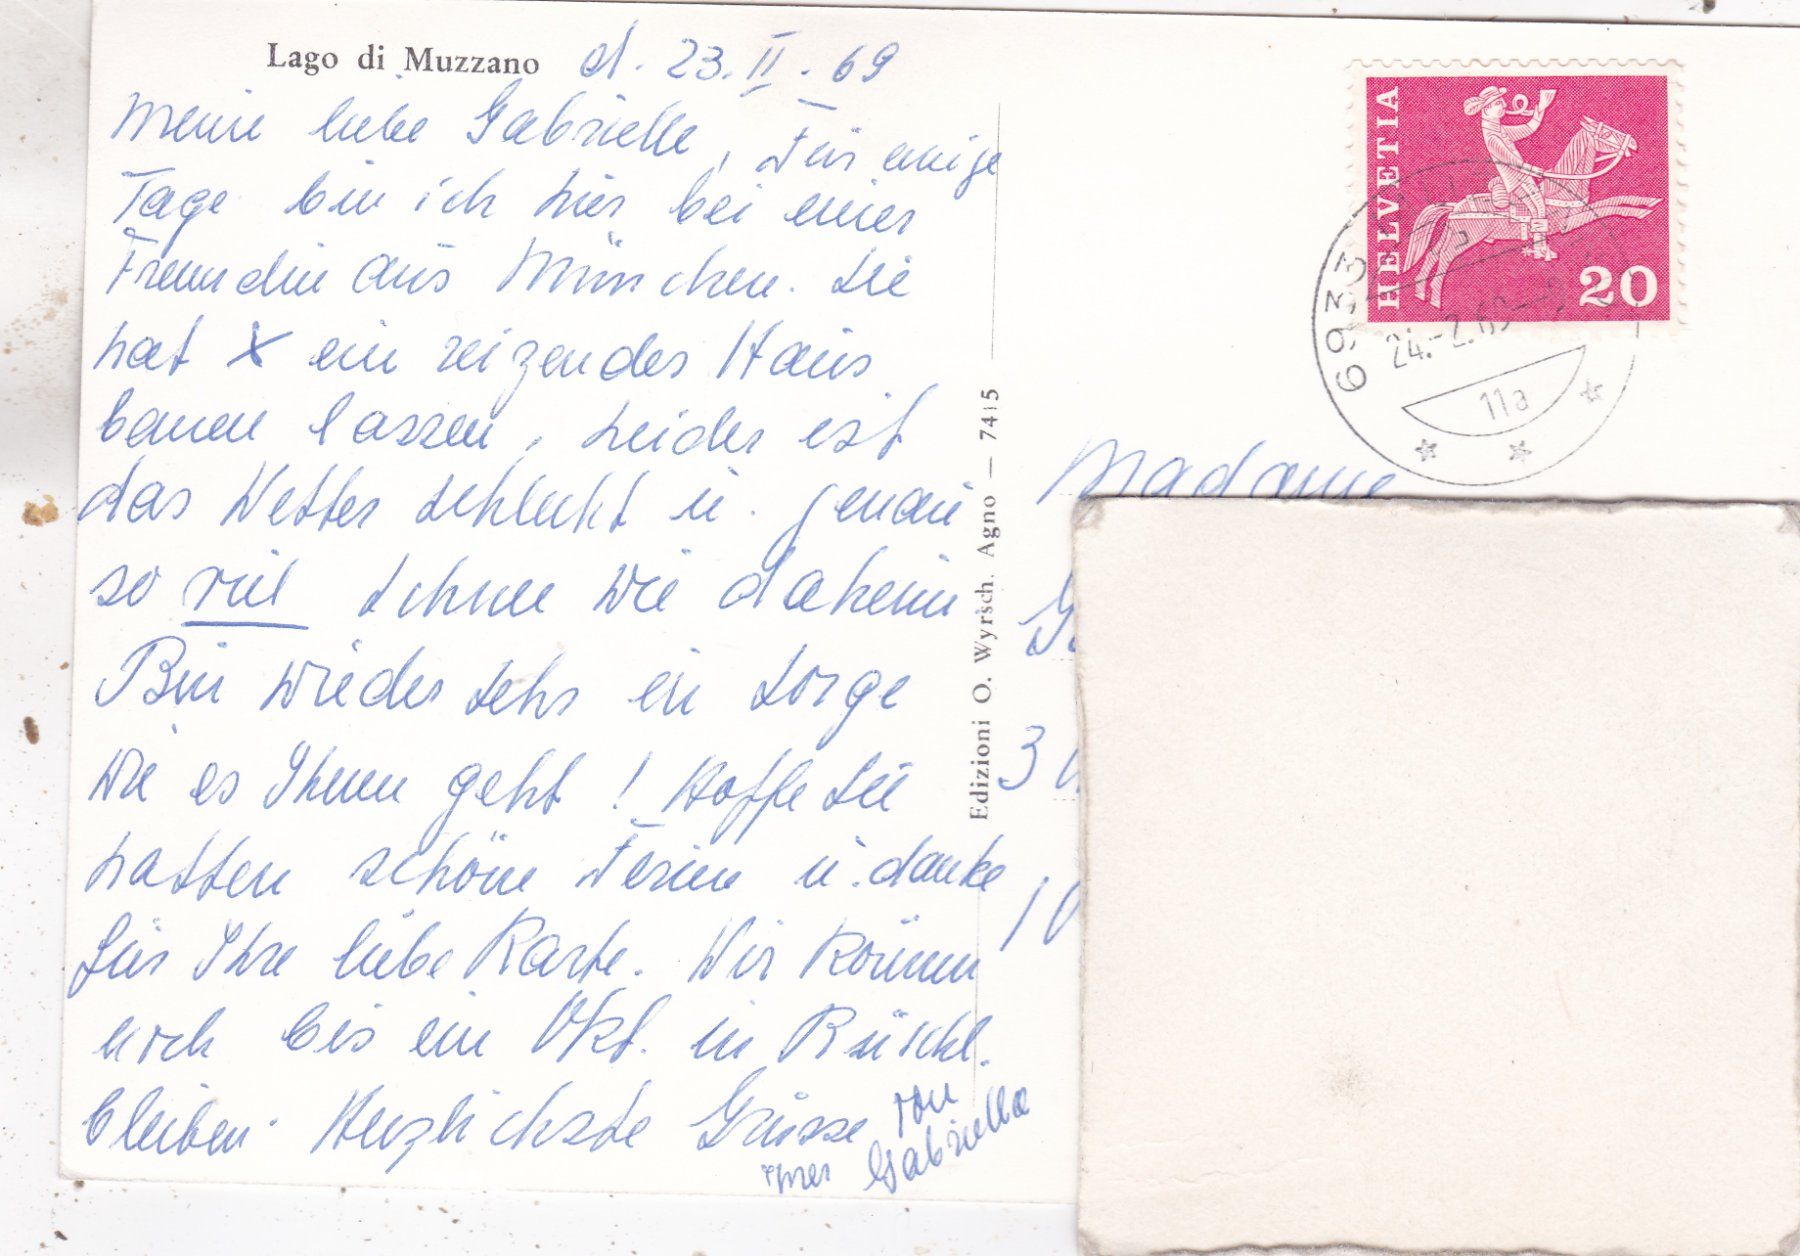 Lago di Muzzano d. 23. II. 69
Meine liebe Gabrielle, Für einige
Tage bin ich hier bei einer
Freundin aus München. Sie
hat ein reizendes Haus
bauen lassen, Leider ist
das Wetter schlecht u. genau
so viel Schnee wie daheim
Bin wieder sehr in Sorge
wie es Ihnen geht! Hoffe Sie
hatten schöne Ferien u. danke
für Ihre liebe Karte. Wir können
noch bis ein Okt. in Rüschl.
bleiben. Herzlichste Grüsse von
Ihrer Gabriella
Edizioni O. Wyrsch. Agno — 7415
HELVETIA
20
6933
24.-2.69
11a
Madame
3
10